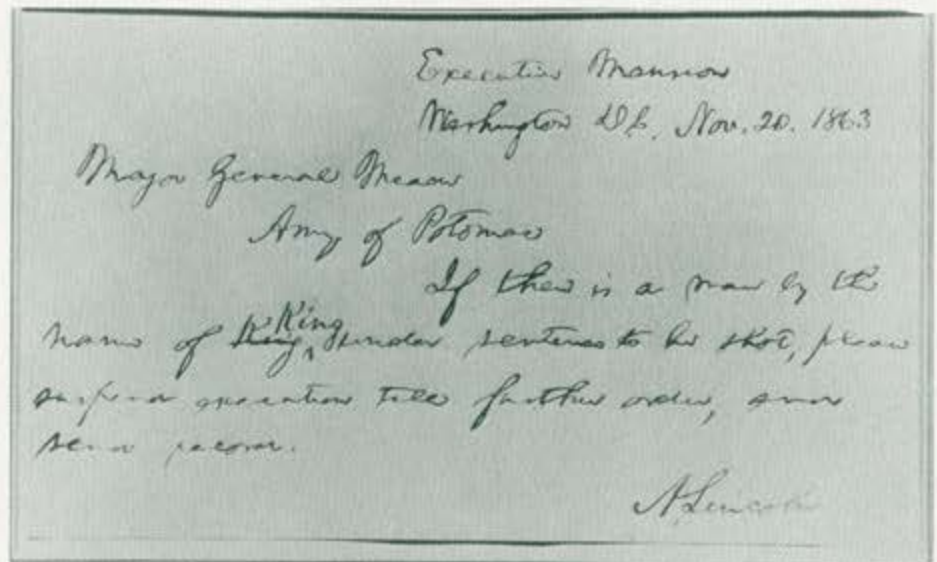 Executive Mansion
Washington D.C., Nov. 20. 1863
Major General Meade
Army of Potomac
If there is a man by the
name of King King under sentence to be shot, please
suspend execution till further order, and
send record.
A. Lincoln